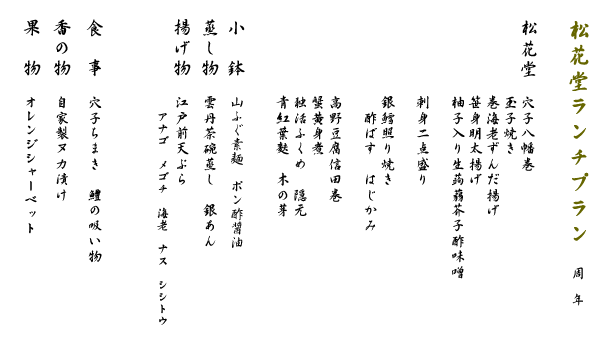 松花堂ランチプラン 周年
松花堂 穴子八幡巻
玉子焼き
巻海老ずんだ揚げ
笹身明太揚げ
柚子入り生蒟蒻芥子酢味噌
刺身二点盛り
銀鱈照り焼き
酢ばす はじかみ
高野豆腐信田巻
蟹黄身煮
独活ふくめ 隠元
青紅葉麩 木の芽
小鉢 山ふぐ素麺 ポン酢醤油
蒸し物 雲丹茶碗蒸し 銀あん
揚げ物 江戸前天ぷら
アナゴ メゴチ 海老 ナス シシトウ
食事 穴子ちまき 鱧の吸い物
香の物 自家製ヌカ漬け
果物 オレンジシャーベット